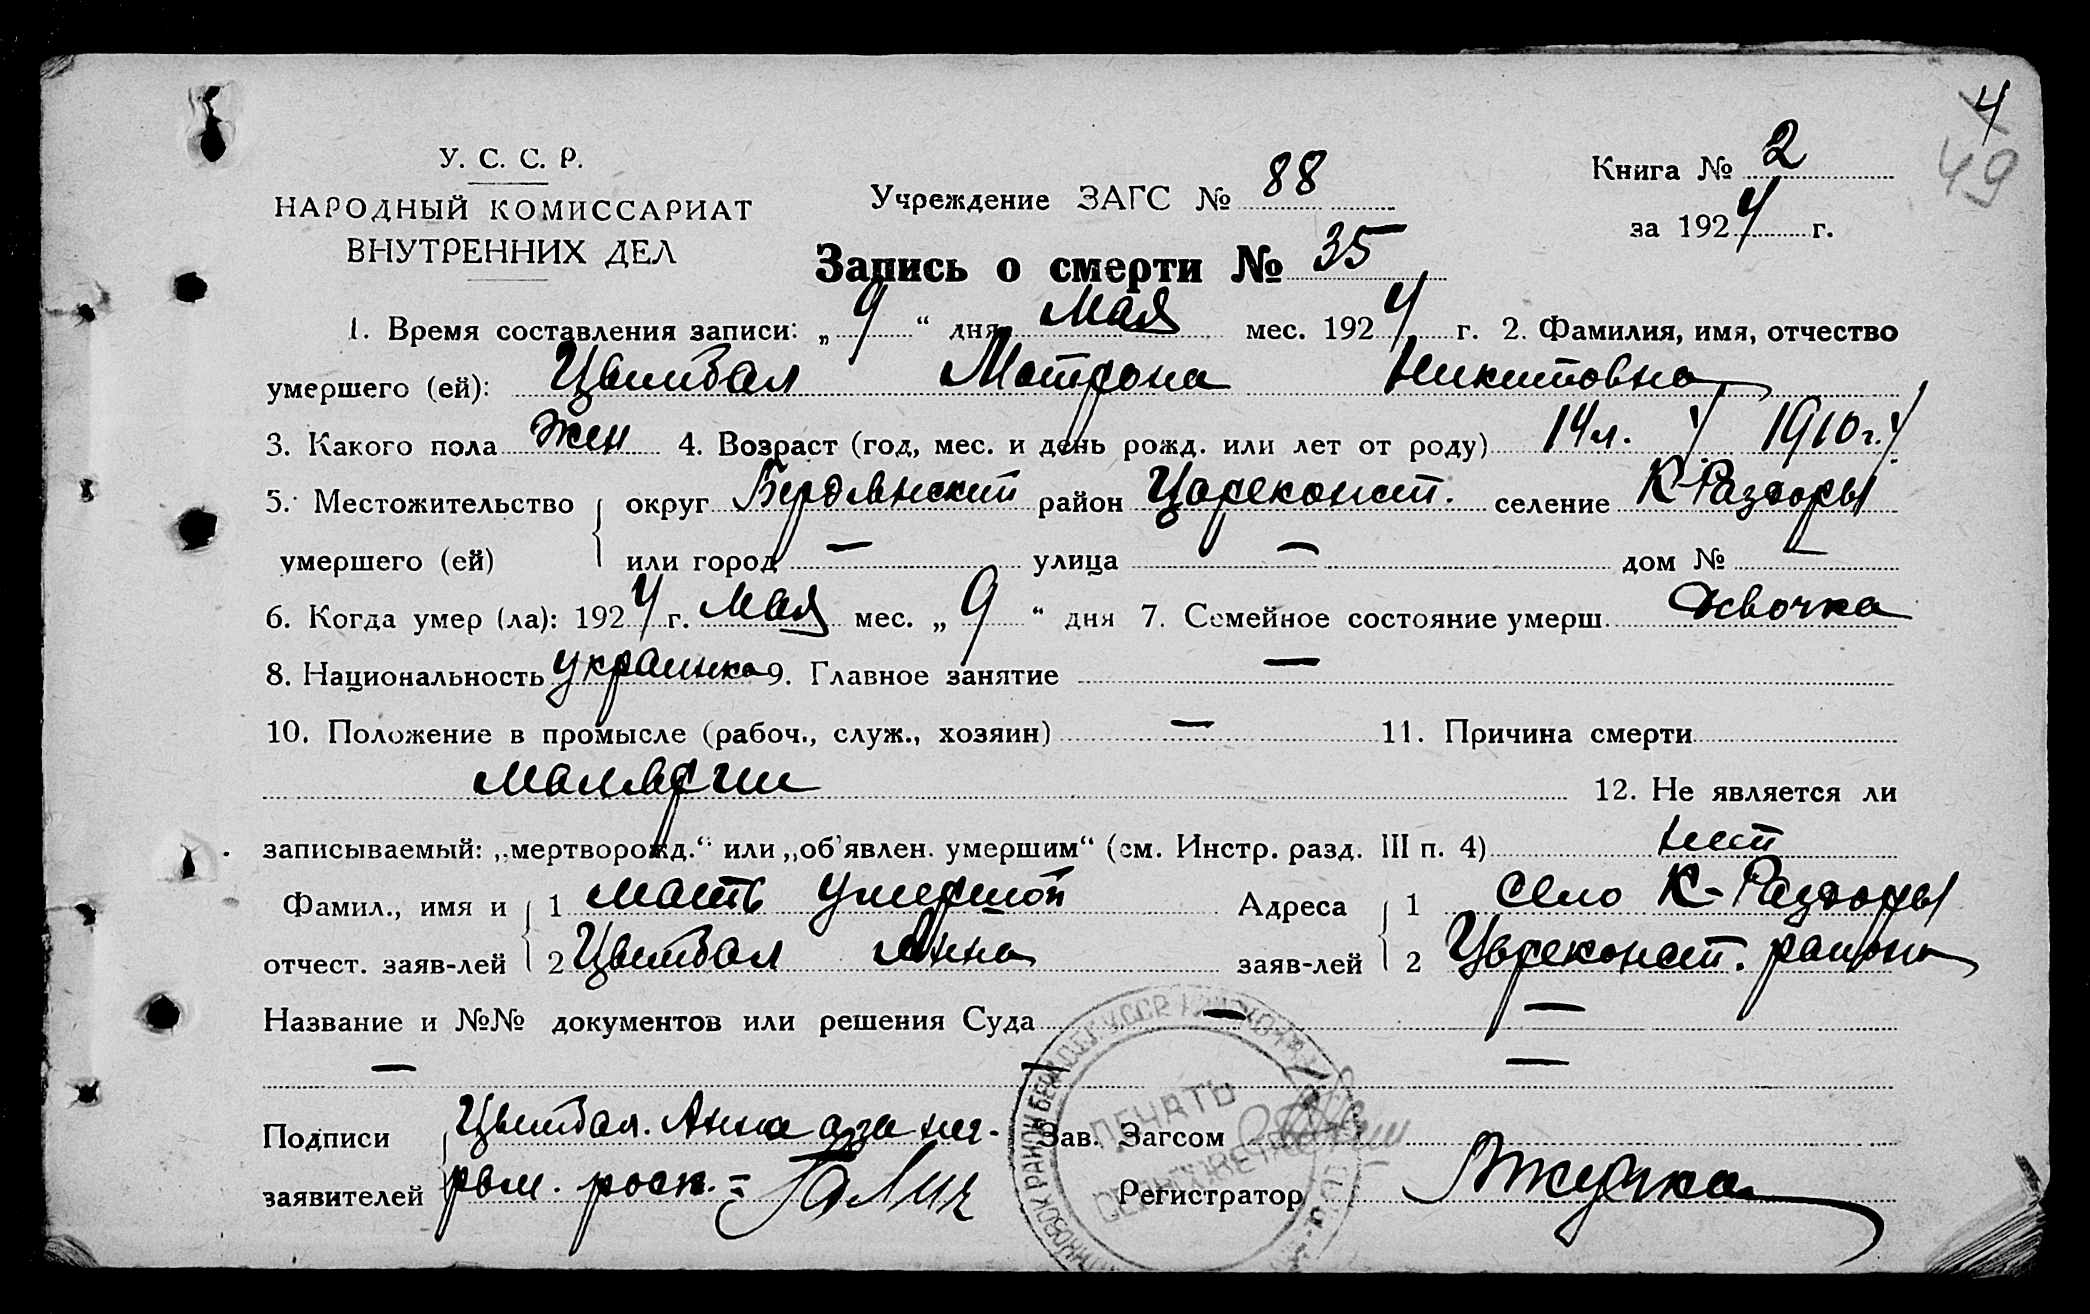 4
49
У. С. С. Р.
НАРОДНЫЙ КОМИССАРИАТ
ВНУТРЕННИХ ДЕЛ
Учреждение ЗАГС № 88
Книга № 2
за 1924 г.
Запись о смерти № 35
1. Время составления записи: „9“ дня Мая мес. 1924 г. 2. Фамилия, имя, отчество
умершего (ей): Цымбал Матрона Никитовна
3. Какого пола жен 4. Возраст (год, мес. и день рожд. или лет от роду) 14 л. 1910 г.
5. Местожительство округ Бердянский район Цареконст. селение К-Раздоры
умершего (ей) или город — улица — дом № —
6. Когда умер (ла): 1924 г. Мая мес. „9“ дня 7. Семейное состояние умерш. Девочка
8. Национальность украинка 9. Главное занятие —
10. Положение в промысле (рабоч., служ., хозяин) — 11. Причина смерти
малярии 12. Не является ли
записываемый: „мертворожд.“ или „об'явлен. умершим“ (см. Инстр. разд. III п. 4) нет
Фамил., имя и 1 мать умершой Адреса 1 село К-Раздоры
отчест. заяв-лей 2 Цымбал Анна заяв-лей 2 Цареконст. района
Название и №№ документов или решения Суда — —
— — —
Подписи Цымбал Анна а за нег- Зав. Загсом
заявителей рам. росп. = Регистратор
ПЕЧАТЬ